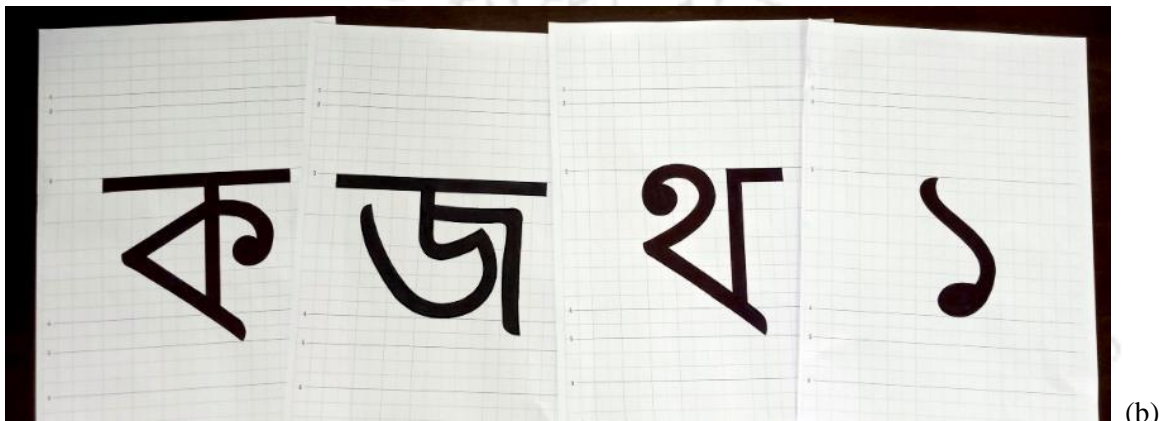 ক জ থ ১
(b)